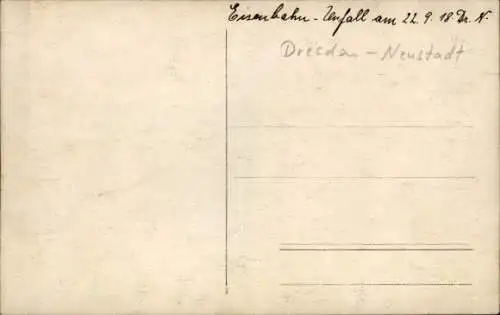 Eisenbahn-Unfall am 22.9.18 Dr. N.
Dresden-Neustadt